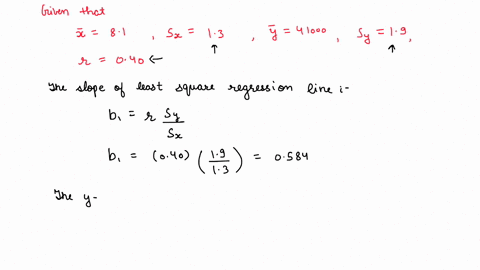 Given that
x̄ = 8.1 , Sx = 1.3 , ȳ = 41000 , Sy = 1.9 ,
r = 0.40 ←
The slope of least square regression line i-
b₁ = r Sy/Sx
b₁ = (0.40) (1.9/1.3) = 0.584
The y-